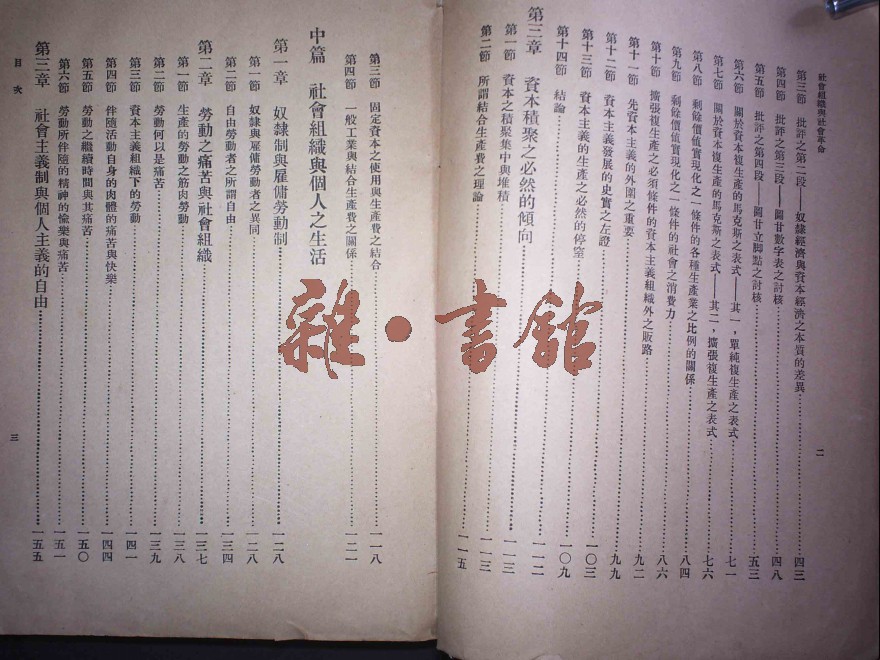 社會組織與社會革命
二
第三節　批評之第二段——奴隸經濟與資本經濟之本質的差異……四三
第四節　批評之第三段——圖甘數字表之討核……四八
第五節　批評之第四段——圖甘立脚點之討核……五三
第六節　關於資本複生產的馬克斯之表式——其一，單純複生產之表式……七一
第七節　關於資本複生產的馬克斯之表式——其二，擴張複生產之表式……七六
第八節　剩餘價値實現化之一條件的各種生產業之比例的關係……八四
第九節　剩餘價値實現化之一條件的社會之消費力……八六
第十節　擴張複生產之必須條件的資本主義組織外之販路……九二
第十一節　先資本主義的外圍之重要……九九
第十二節　資本主義發展的史實之左證……一〇三
第十三節　資本主義的生產之必然的停窒……一〇九
第十四節　結論……一一二
第三章　資本積聚之必然的傾向……一一三
第一節　資本之積聚集中與堆積……一一三
第二節　所謂結合生產費之理論……一一五
第三節　固定資本之使用與生產費之結合……一一八
第四節　一般工業與結合生產費之關係……一二一
中篇　社會組織與個人之生活
第一章　奴隸制與雇傭勞動制……一二八
第一節　奴隸與雇傭勞動者之異同……一二八
第二節　自由勞動者之所謂自由……一三四
第二章　勞動之痛苦與社會組織……一三七
第一節　生產的勞動之筋肉勞動……一三八
第二節　勞動何以是痛苦……一三九
第三節　資本主義組織下的勞動……一四一
第四節　伴隨活動自身的肉體的痛苦與快樂……一四四
第五節　勞動之繼續時間與其痛苦……一五〇
第六節　勞動所伴隨的精神的愉樂與痛苦……一五一
第三章　社會主義制與個人主義的自由……一五五
目次
三
雜·書舘